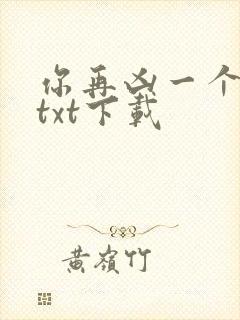 你再凶一个
txt下载
黄岭竹